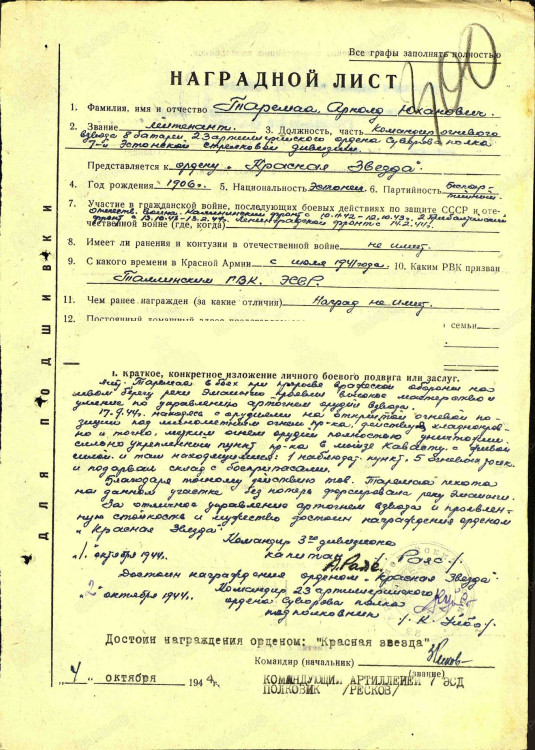 Все графы заполнять полностью
390
НАГРАДНОЙ ЛИСТ
1. Фамилия, имя и отчество Таремаа, Арнольд Юханович.
2. Звание лейтенант. 3. Должность, часть Командир огневого
взвода 8 батареи 23 артиллерийского ордена Суворова полка
7-й Эстонской стрелковой дивизии.
Представляется к ордену „Красная Звезда"
4. Год рождения 1906г. 5. Национальность Эстонец 6. Партийность Беспар-
тийный
7. Участие в гражданской войне, последующих боевых действиях по защите СССР и оте-
Отечеств. война. Калининский фронт с 10.11.42-12.10.43г. 2 Прибалтийский
фронт с 13.10.43-13.2.44г. Ленинградский фронт с 14.2.44г.
чественной войне (где, когда)
8. Имеет ли ранения и контузии в отечественной войне не имеет.
9. С какого времени в Красной Армии с июля 1941 года. 10. Каким РВК призван
Таллинским ГВК. ЭССР.
11. Чем ранее награжден (за какие отличия) Наград не имеет.
12. Постоянный домашний адрес
семьи
I. Краткое, конкретное изложение личного боевого подвига или заслуг.
лейт. Таремаа в боях при прорыве вражеской обороны на
левом берегу реки Эмайыги проявил высокое мастерство и
умение по управлению артогнем орудий взвода.
17.9.44г. находясь с орудиями на открытой огневой по-
зиции под минометным огнем пр-ка, действуя хладнокров-
но и точно, метким огнем орудий полностью уничтожил
сильно укрепленный пункт пр-ка в мызе Кавасту с живой
силой и там находящимися: 1 наблюдат. пункт, 5 огневых точек
и подорвал склад с боеприпасами.
Благодаря точному действию тов. Таремаа пехота
на данном участке без потерь форсировала реку Эмайыги.
За отличное управление артогнем взвода и проявлен-
ную стойкость и мужество достоин награждения орденом
„Красная Звезда"
Командир 3го дивизиона
„1" октября 1944г. капитан /Раяс/.
Достоин награждения орденом „Красная Звезда"
„2" октября 1944г. Командир 23 артиллерийского
ордена Суворова полка
подполковник /К. Уйбо/
Достоин награждения орденом: "Красная звезда".
Командир (начальник)
(звание)
„4" октября 1944г. КОМАНДУЮЩИЙ АРТИЛЛЕРИЕЙ 7 ЭСД
ПОЛКОВИК /РЕСКОВ/
ДЛЯ ПОДШИВКИ